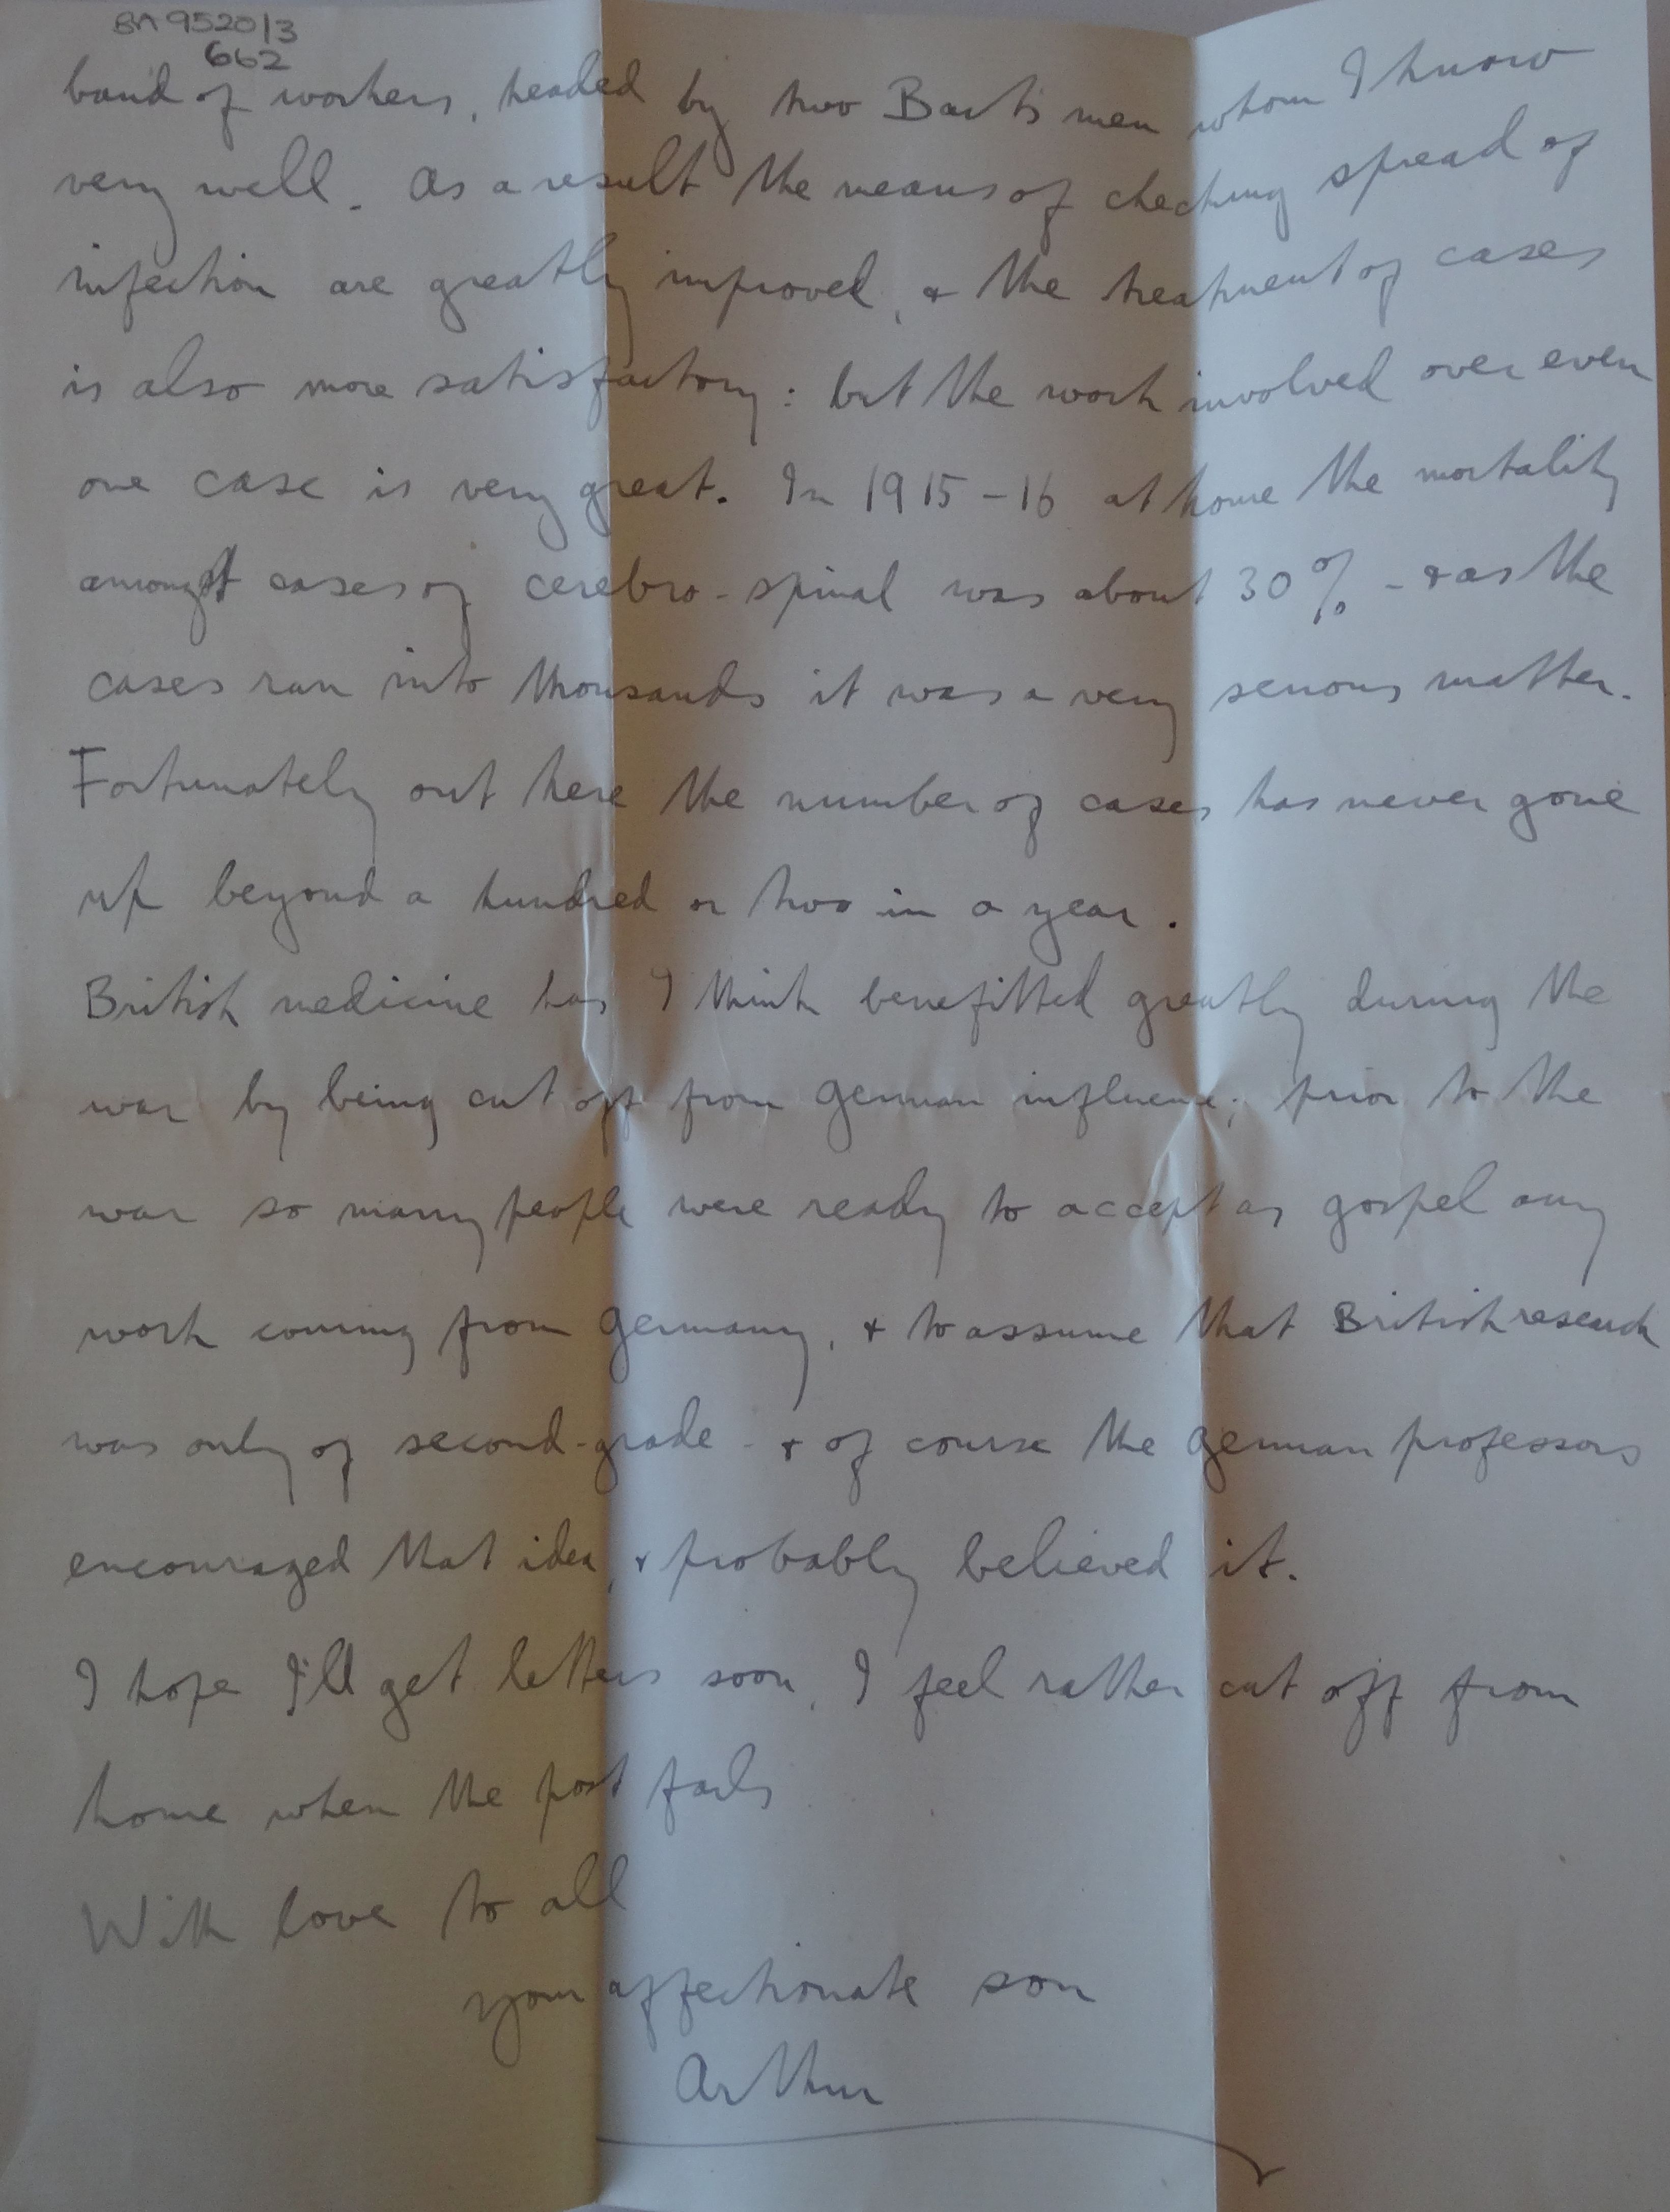 BA 9520/3
662
band of workers, headed by two Barts men whom I know
very well. As a result the means of checking spread of
infection are greatly improved, & the treatment of cases
is also more satisfactory: but the work involved over even
one case is very great. In 1915-16 at home the mortality
amongst cases of cerebro-spinal was about 30% - & as the
cases ran into thousands it was a very serious matter.
Fortunately out here the number of cases has never gone
up beyond a hundred or two in a year.
British medicine has I think benefitted greatly during the
war by being cut off from German influence; prior to the
war so many people were ready to accept as gospel any
work coming from Germany, & to assume that British research
was only of second-grade - & of course the German professors
encouraged that idea, & probably believed it.
I hope I'll get letters soon, I feel rather cut off from
home when the post fails
With love to all
your affectionate son
Arthur